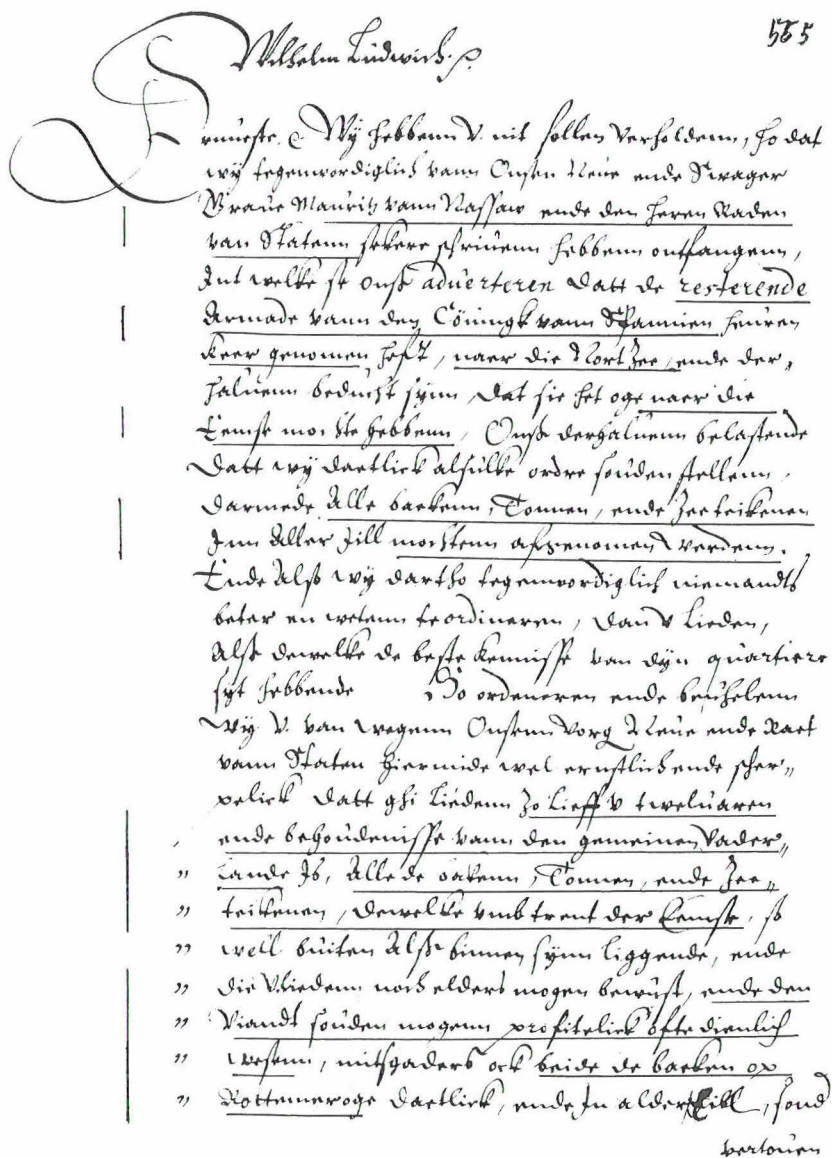 565
Wilhelm Ludwich.
Ernueste. Wÿ hebbenn V. nit sollen verholdenn, so dat
wÿ tegenwordiglich vann Onsen Neue ende Swager
Graue Mauritz vann Nassaw ende den heren Raden
van Statenn sekere schriuenn hebbenn ontfangenn,
Int welke se onß aduerteren datt de resterende
Armade vann den Cöningk vann Spannien heuren
Keer genomen heft, naer die Nort Zee, ende der„
haluenn beducht synn, dat sie het oge naer die
Eemse mochte hebbenn, Onß derhaluenn belastende
Datt wÿ daetlick alsulke ordre souden stellenn,
darmede Alle baekenn, Tonnen, ende Zeeteikenen
Inn Aller Jill mochtenn afgenomen werdenn.
Ende Alß wÿ dartho tegenwordiglich niemandts
beter en wetenn te ordineren, dan v Lieden,
Alß dewelke de beste kennisse van dÿn quartiere
sÿt hebbende So ordeneren ende beuhelenn
wÿ V. van wegenn Onsenn Vorg Neue ende Raet
vann Staten hiermide wel ernstlich ende scher„
pelick Datt ghi Liedenn Zo Lieff v tweluaren
ende behoudenisse vann den gemeinen Vader„
„ Lande Is, Alle de baekenn, Tonnen, ende Zee„
„ teikenen, dewelke vmbtrent der Eemse, so
„ well buiten Alß binnen synn liggende, ende
„ die V Liedenn noch elders mogen bewust, ende den
„ Viandt souden mogenn profitelick ofte dienlich
„ wesenn, mitsgaders ock beide de baeken op
„ Rottemeroge daetlick, ende In alder Jill, sond
vertouen